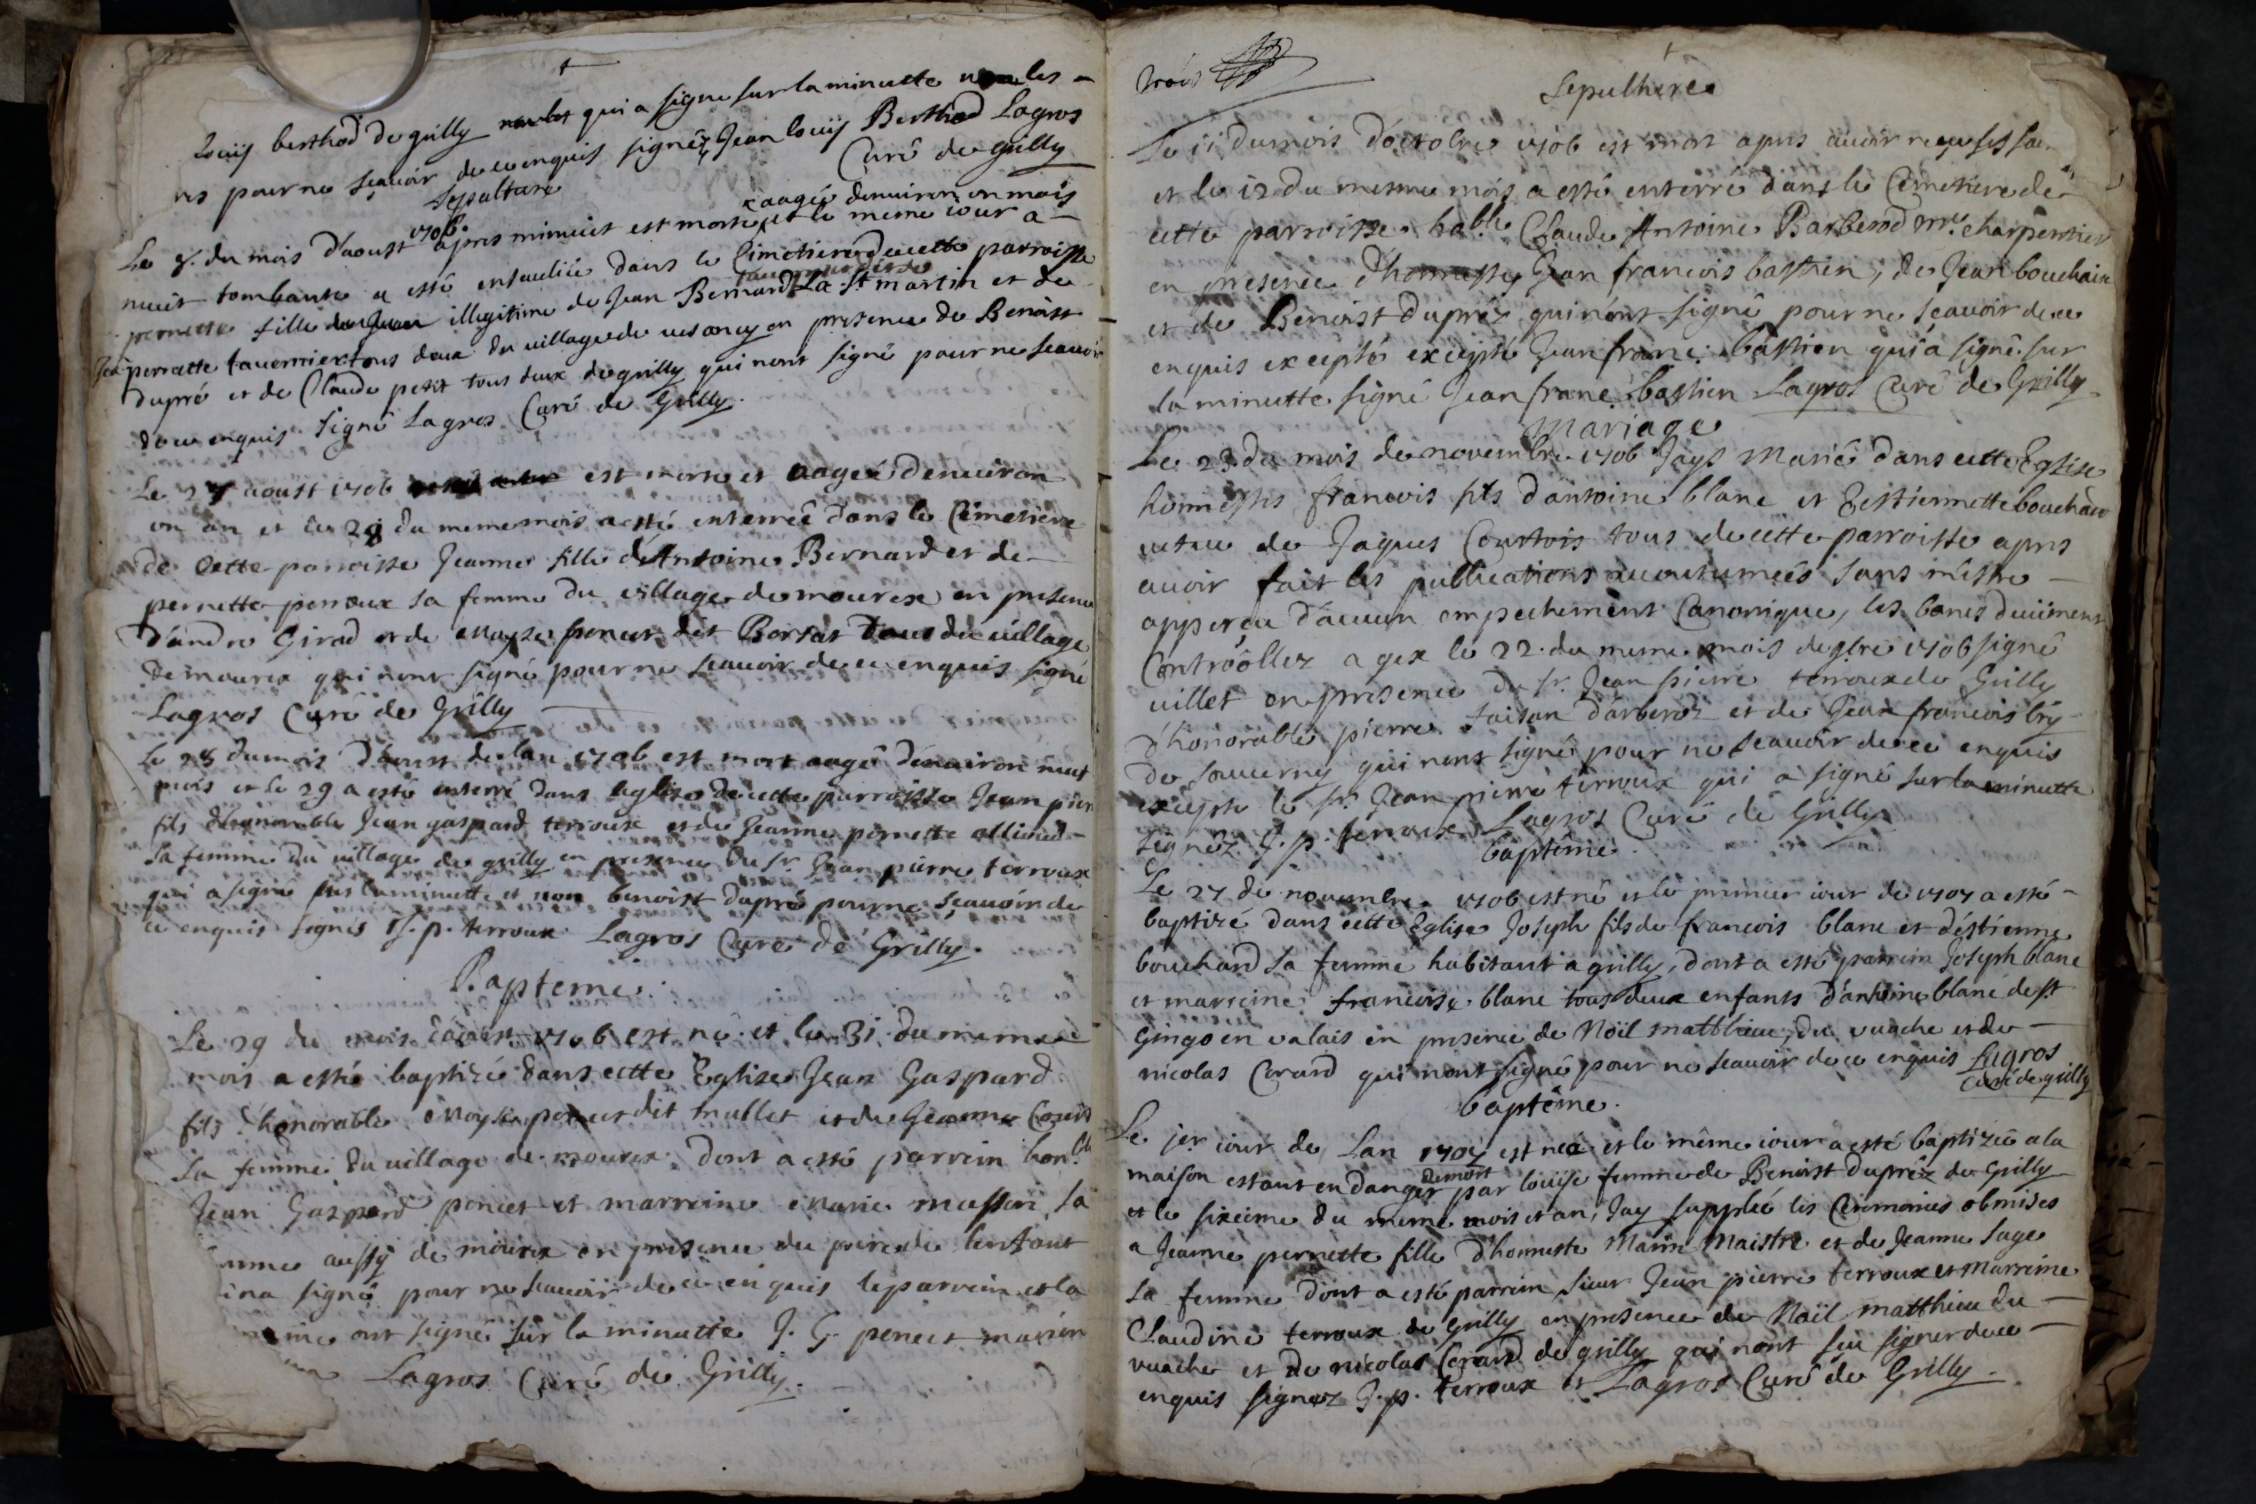 Louÿ berthod de grilly qui a signe sur la minutte les
pour ne sçauoir de ce enquis signéz Jean louÿ Berthod Lagros
Curé de grilly
Sepulture
aagée denuiron un mois
Le 8. du mois d'aoust 1706. apres minuict est morte et le meme iour a
nuict tombante a esté enseuelie dans le Cimetiere de cette parroisse
pernette fille illegitime de Jean Bernard La St. martin et de
perrette tauernier tous deux du village de uesancy en presence de Benoist
dupré et de Claude petit tous deux de grilly qui nont signé pour ne sçauoir
de ce enquis signé Lagros Curé de Grilly.
Le 27 aoust 1706 est morte et aagée d'enuiron
un an et le 28 du meme mois a esté enterreé dans le Cimetiere
de Cette parroisse Jeanne fille d'Antoine Bernard et de
pernette perroux sa femme du village de mourex en presence
d'andre Girod et de moyse poncet dit Borsat tous du uillage
de mourex qui nont signé pour ne sçauoir de ce enquis signé
Lagros Curé de Grilly
Le 28 du mois d'aoust de lan 1706 est mort aagé d'enuiron neuf
mois et le 29 a esté enterré dans leglise de cette parroisse Jean pier
fils d'honorable Jean gaspard terroux et de Jeanne pernette alliod
sa femme du uillage de grilly en presence du Sr. Jean pierre terroux
qui a signé sur la minutte et non benoist dupré pour ne sçauoir de
ce enquis signés J. p. terroux Lagros Curé de Grilly.
Bapteme.
Le 29 du mois d'aoust 1706 est né et le 31 du meme
mois a esté baptizé dans cette Eglise Jean Gaspard
fils d'honorable moyse poncet dit mullet et de Jeanne
sa femme du village de mourex. Dont a esté parrein hon.ble
Jean Gaspard poncet et marreine marie masson sa
femme aussy de mourex en presence du pere de lenfant
signé pour ne scauoir de ce enquis le parrein et la
ont signé sur la minutte J. G. poncet
Lagros Curé de Grilly.
trois
Sepulthure
Le 11 du mois d'octobre 1706 est mort apres auoir reçu ses
et le 12 du mesme mois a esté enterré dans le Cemetiere de
cette parroisse. hab.le Claude Antoine Barberod mre. charpentier
en presence d'honnestes Jean francois bastien, de Jean bouchain
et de Benoist dupréz qui n'ont signé pour ne sçauoir de ce
enquis excepté excepté Jean franc. bastien qui a signé sur
la minutte signé Jean franc. bastien Lagros Curé de Grilly.
Mariage
Le 23 du mois de novembre 1706 Jays Marié dans cette Eglise
honnestes francois fils d'antoine blanc et Eestiennette bouchard
uefue de Jaques Courtois tous de cette parroisse apres
auoir fait les publications accoutumeés sans m'estre
apperçu d'aucun empechement Canonique, les bancs deuëment
Controollez a gex le 22. du meme mois de 9bre 1706 signé
uillet en presence du sr. Jean pierre terroux de Grilly
d'honorable pierre taisan d'arberoz et de Jean francois bry
de sauuerny qui nont signé pour ne sçauoir de ce enquis
excepte le sr. Jean pierre terroux qui a signé sur la minutte
signéz J. p. terroux Lagros Curé de Grilly
baptême.
Le 27 de nouembre. 1706 est né et le premier iour de 1707 a esté
baptizé dans cette Eglise Joseph fils de francois blanc et d'éstienne
bouchard sa femme habitant a grilly, dont a esté parrein Joseph blanc
et marreine francoise blanc tous deux enfants d'antoine blanc de st
Gingo en valais en presence de Noël matthieu, du vuache et de
nicolas Cerard qui nont signé pour ne sçauoir de ce enquis Lagros
Curé de grilly
baptême.
Le jer iour de Lan 1707 est neé et le même iour a esté baptizeé a la
maison estant en danger de mort par louise femme de Benoist dupréz de Grilly
et le sixieme du meme mois et an, Jay suppléé les Ceremonies obmises
a Jeanne pernette fille d'honneste Marin Maistre et de Jeanne sage
sa femme dont a esté parrein sieur Jean pierre terroux et marreine
Claudine terroux de Grilly en presence de Noël matthieu du
vuache et de nicolas Cerard de grilly qui nont sçu signer de ce
enquis signez J. p. terroux et Lagros Curé de Grilly.